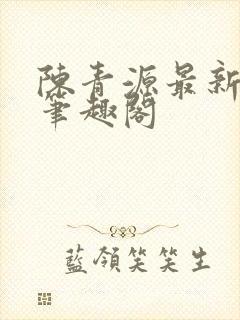 陳青源最新
筆趣閣
藍領笑笑生